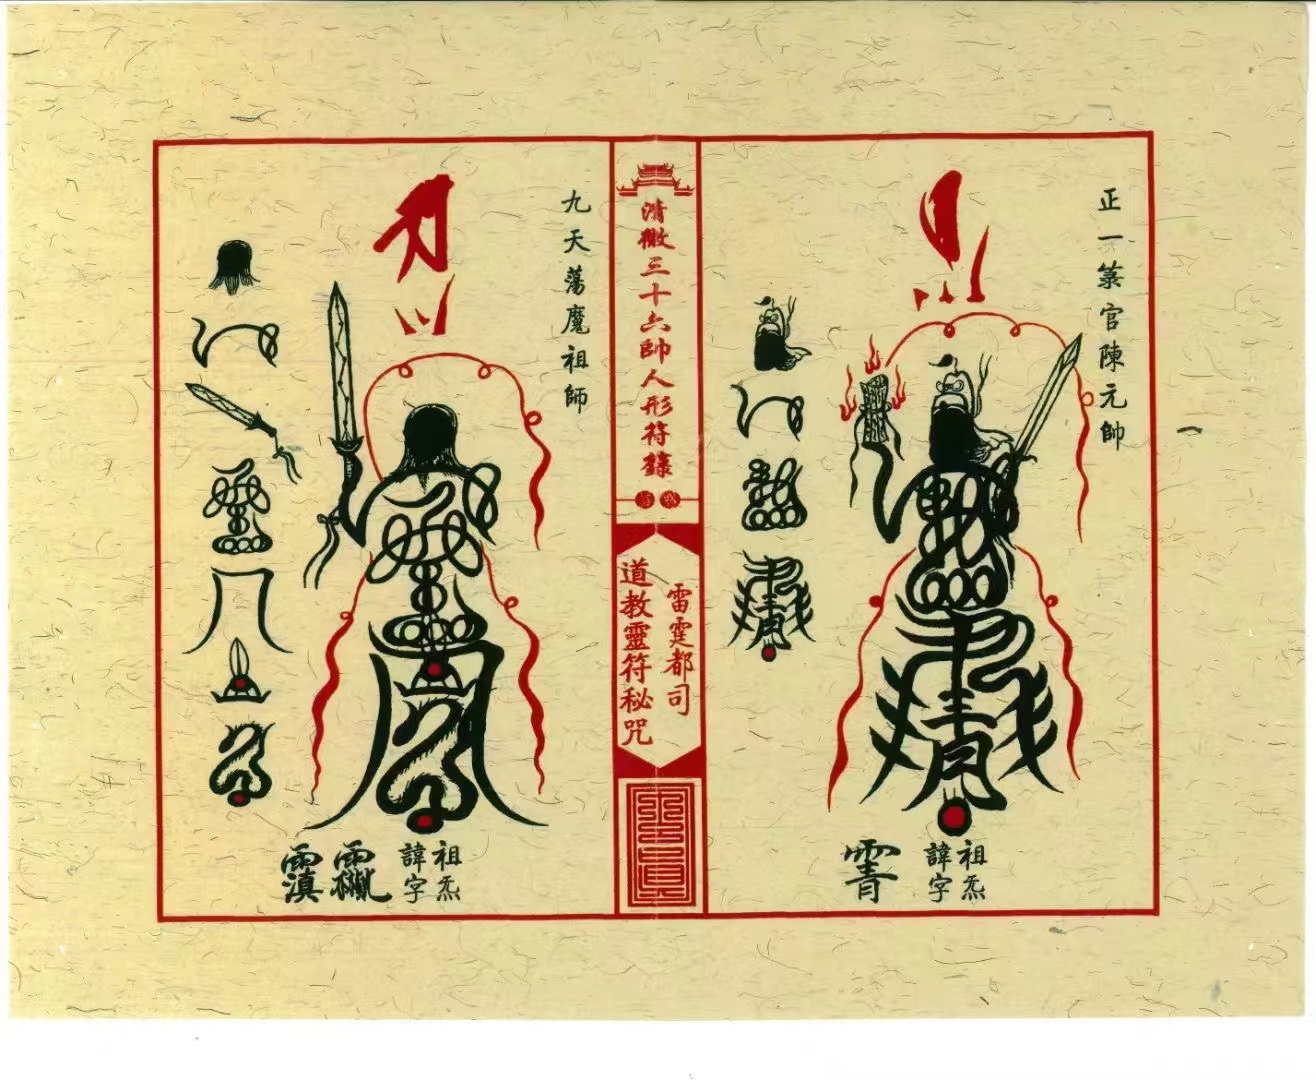 正一箓官陳元帥
祖炁
諱字
清微三十六帥人形符籙
雷霆都司
道教靈符秘咒
九天蕩魔祖師
祖炁
諱字